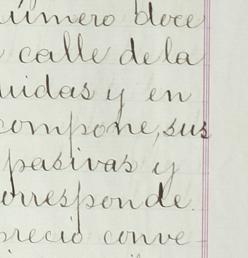 número doce
calle de la
uidas y en
compone, sus
pasivas y
orresponde.
precio conve-